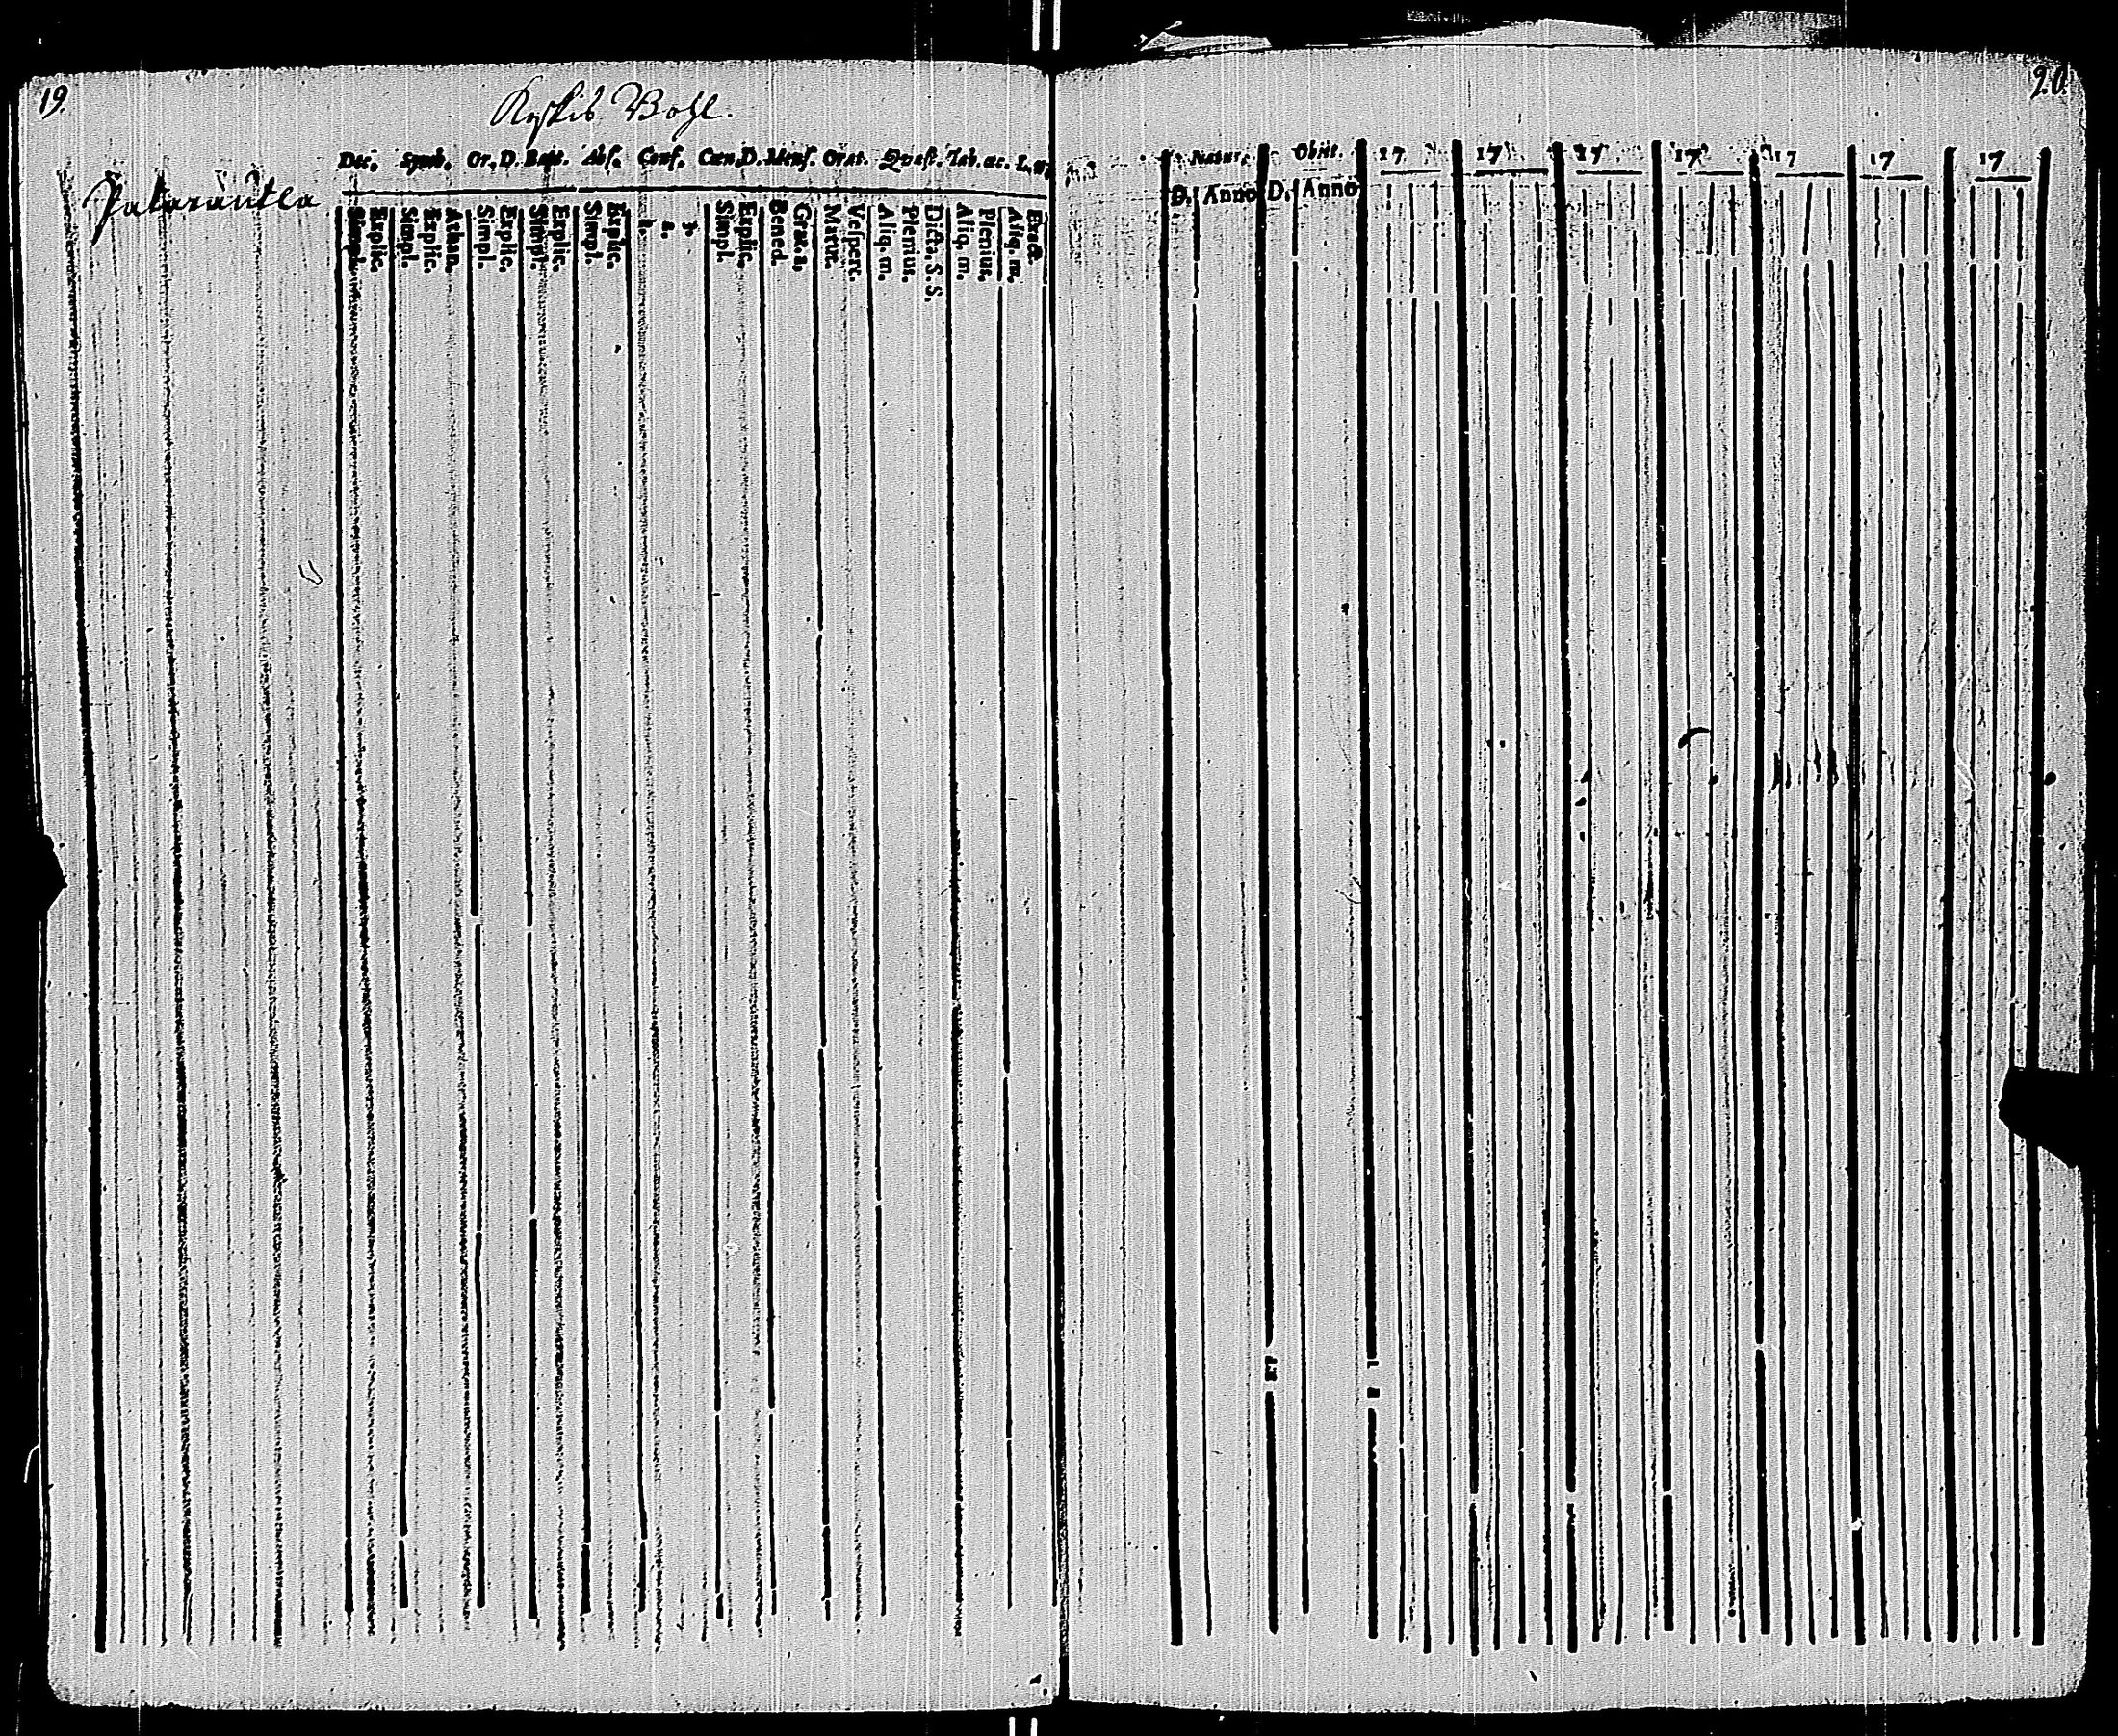 19.
20.
Kyrkio Bohl.
Dec. Symb. Or. D. Bapt. Abs. Conf. Cœn. D. Mens. Orat. Quæst. Tab. œc. L. n.
Simpl. Explic. Simpl. Explic. Athan. Simpl. Explic. Simpl. Explic. Simpl. Explic. Simpl. Explic. Bened. Grat. a. Matut. Vespert. Aliq. m. Plenius. Dict. S. S. Aliq. m. Plenius. Aliq. m. Exact.
Natur. Obiit. 17 17 17 17 17 17 17
D. Anno D. Anno